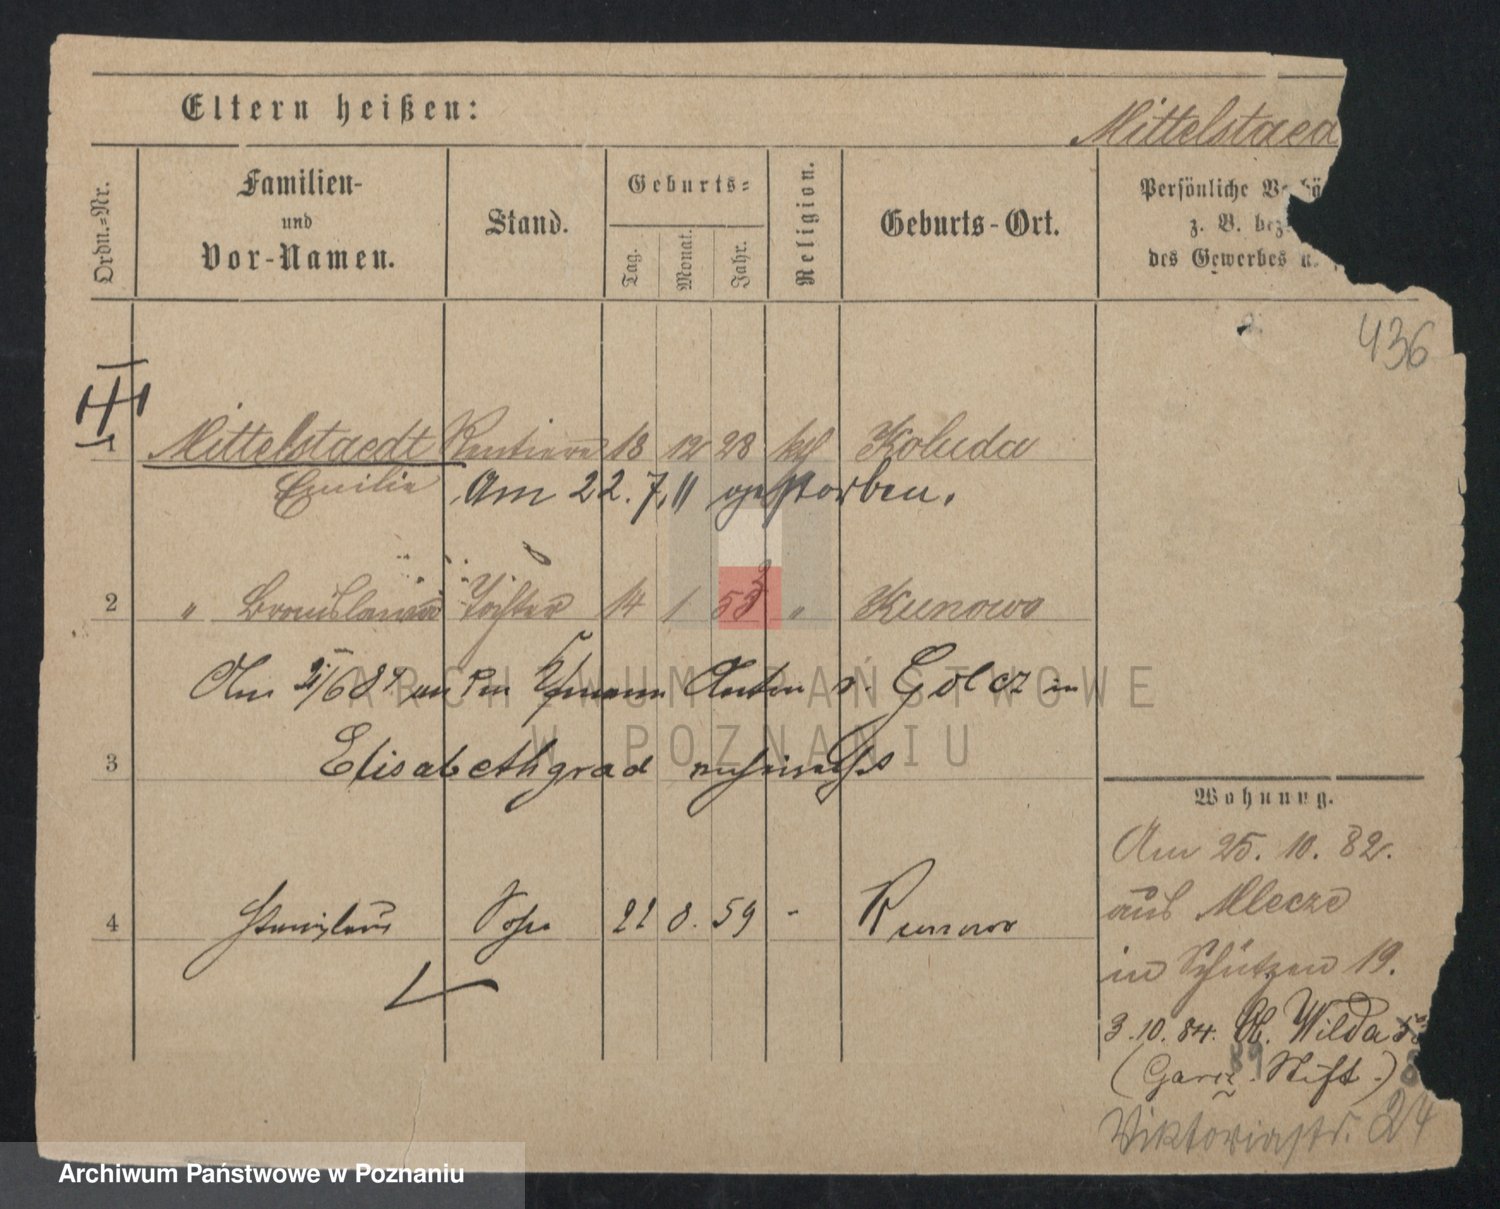 Eltern heißen:
Mittelstaed
Ordn.-Nr.
Familien-
und
Vor-Namen.
Stand.
Geburts-
Tag.
Monat.
Jahr.
Religion.
Geburts-Ort.
Persönliche
z. B.
des Gewerbes
436
III
1 Mittelstaedt Rentiere 18 12 28 kth Koluda
Emilie Am 22.7.11 gestorben.
2 " Bronislawa Tochter 14 1 53 " Kunowo
Am 6 87 an den Anton v. Golcz in
3 Elisabethgrad
4 Stanislaus Sohn 22 8. 59 - Kunowo
Wohnung.
Am 25. 10. 82.
aus Mlecze
in Schützen 19.
3.10.84. Ob. Wilda
89
(Garcz. Stift.)
Viktoriastr. 24
ARCHIWUM PAŃSTWOWE
W POZNANIU
Archiwum Państwowe w Poznaniu